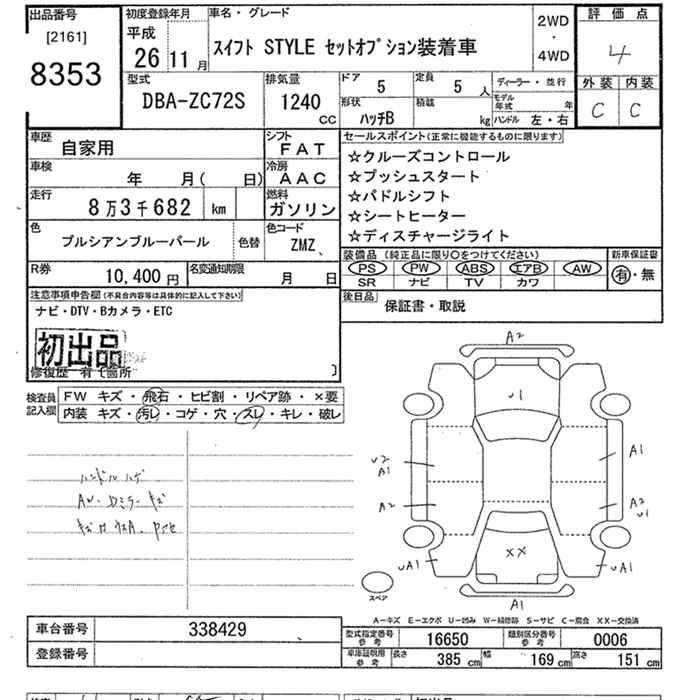 出品番号
[2161]
8353
初度登録年月
平成
26年 11月
車名・グレード
スイフト STYLE セットオプション装着車
2WD
・
4WD
評価点
4
外装 内装
C C
型式
DBA-ZC72S
排気量
1240 CC
ドア
5
定員
5 人
ディーラー・並行
モデル年式 年
形状
ハッチB
積載
kg
ハンドル 左・右
車歴
自家用
シフト
FAT
車検
年 月( 日)
冷房
AAC
走行
8万3千682 km
燃料
ガソリン
色
ブルシアンブルーパール
色替
色コード
ZMZ
R券
10,400 円
名変通知期限
月 日
セールスポイント(正常に機能するものに限ります)
☆クルーズコントロール
☆プッシュスタート
☆パドルシフト
☆シートヒーター
☆ディスチャージライト
装備品(純正品に限り○をつけてください)
PS PW ABS エアB AW
SR ナビ TV カワ
新車保証書
有・無
後日品
保証書・取説
注意事項申告欄(不具合内容等は具体的に記入して下さい)
ナビ・DTV・Bカメラ・ETC
初出品
修復歴 有〔箇所 〕
検査員記入欄
FW キズ・飛石・ヒビ割・リペア跡・×要
内装 キズ・汚レ・コゲ・穴・スレ・キレ・破レ
ハンドルハゲ
AW・Dミラーキズ
A2
U1
U2
A1
A1
A2
A2
U1
XX
UA1
UA1
A1
スペア
A-キズ E-エクボ U-凹み W-補修跡 S-サビ C-腐食 XX-交換済
車台番号
338429
登録番号
型式指定番号参考
16650
類別区分番号参考
0006
車庫証明用参考
長さ 385 cm
幅 169 cm
高さ 151 cm